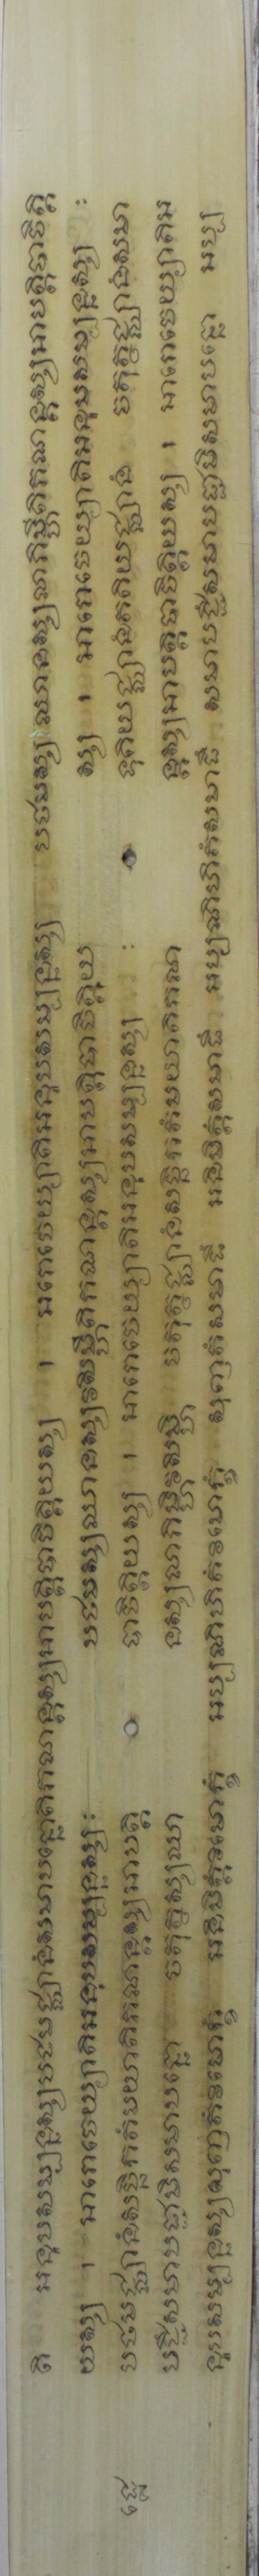 តិ អនុបសម្បន្នស្សបឋមជ្ឈានំសមាបន្នោតិភណន្តស្សអាបត្តិបាចិត្តិយស្ស ។ អារោចេយ្យាតិអនុបសម្បន្នស្ស បឋមស្សឈានស្សលាភិម្ហីតិភណន្តស្សអាបត្តិបាចិត្តិ
យស្ស ។ អារោចេយ្យាតិអនុបសម្បន្នស្ស: បឋមស្សឈានស្សវសិម្ហីតិភណន្តស្សអាបត្តិបាចិត្តិយ ស្ស ។ អារោចេយ្យាតិអនុបសម្បន្នស្ស :
បឋមជ្ឈានំសច្ឆិកតំមយាតិភណន្តស្សអាបត្តិ បាចិត្តិយស្ស ។ អារោចេយ្យាតិអនុបសម្បន្នស្ស : ទុតិយជ្ឈានំតតិយជ្ឈានំ ចតុត្ថជ្ឈានំសមា
បជ្ជឹសមាបជ្ជាមិសមាបន្នោ ចតុត្ថស្សឈា នស្សលាភិម្ហិវសិម្ហិ ចតុត្ថជ្ឈានំសច្ឆិកតំមយាតិភណ ន្តស្សអាបត្តិបាចិត្តិយស្ស ។ អារោចេយ្យាតិអ
នុបសម្បន្នស្សសុញតំវិមោក្ខំ អនិមិត្តំវិមោក្ខំ អប្បណិហិតំវិមោក្ខំ សុញតំសមាធឹ អនិមិត្តំសមាធឹ អប្បណិហិតំសមាធឹ សមាបជ្ជឹសមាបជ្ជាមិសមាបន្នោ អប្ប